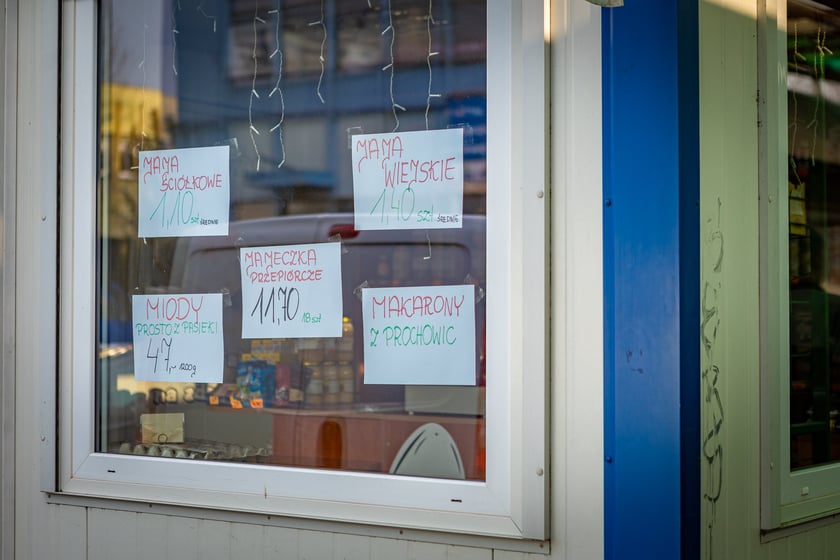 JAJA
ŚCIÓŁKOWE
1,10 szt ŚREDNIE
JAJA
WIEJSKIE
1,40 szt ŚREDNIE
JAJECZKA
PRZEPIÓRCZE
11,70 18 szt
MIODY
PROSTO Z PASIEKI
47,- 1200g
MAKARONY
Z PROCHOWIC